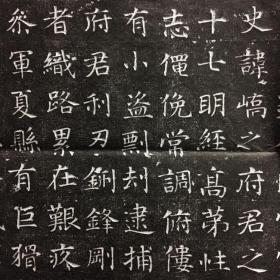 史諱之府君之
十七明經高第性
志僶俛常調俯僂
有小盜剽刦逮捕
府君利刃鋒剛
者織路累在艱疚
叅軍夏縣有巨猾